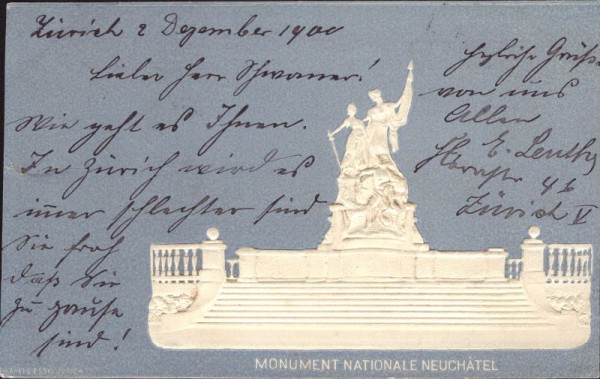 Zürich 2 Dezember 1900
Lieber Herr Schwarer!
Wie geht es Ihnen.
In Zürich wird es
imer schlechter sind
Sie froh
daß Sie
zu hause
sind!
herzliche Grüße
von uns
Allen
E.
46
Zürich V
MONUMENT NATIONALE NEUCHÂTEL